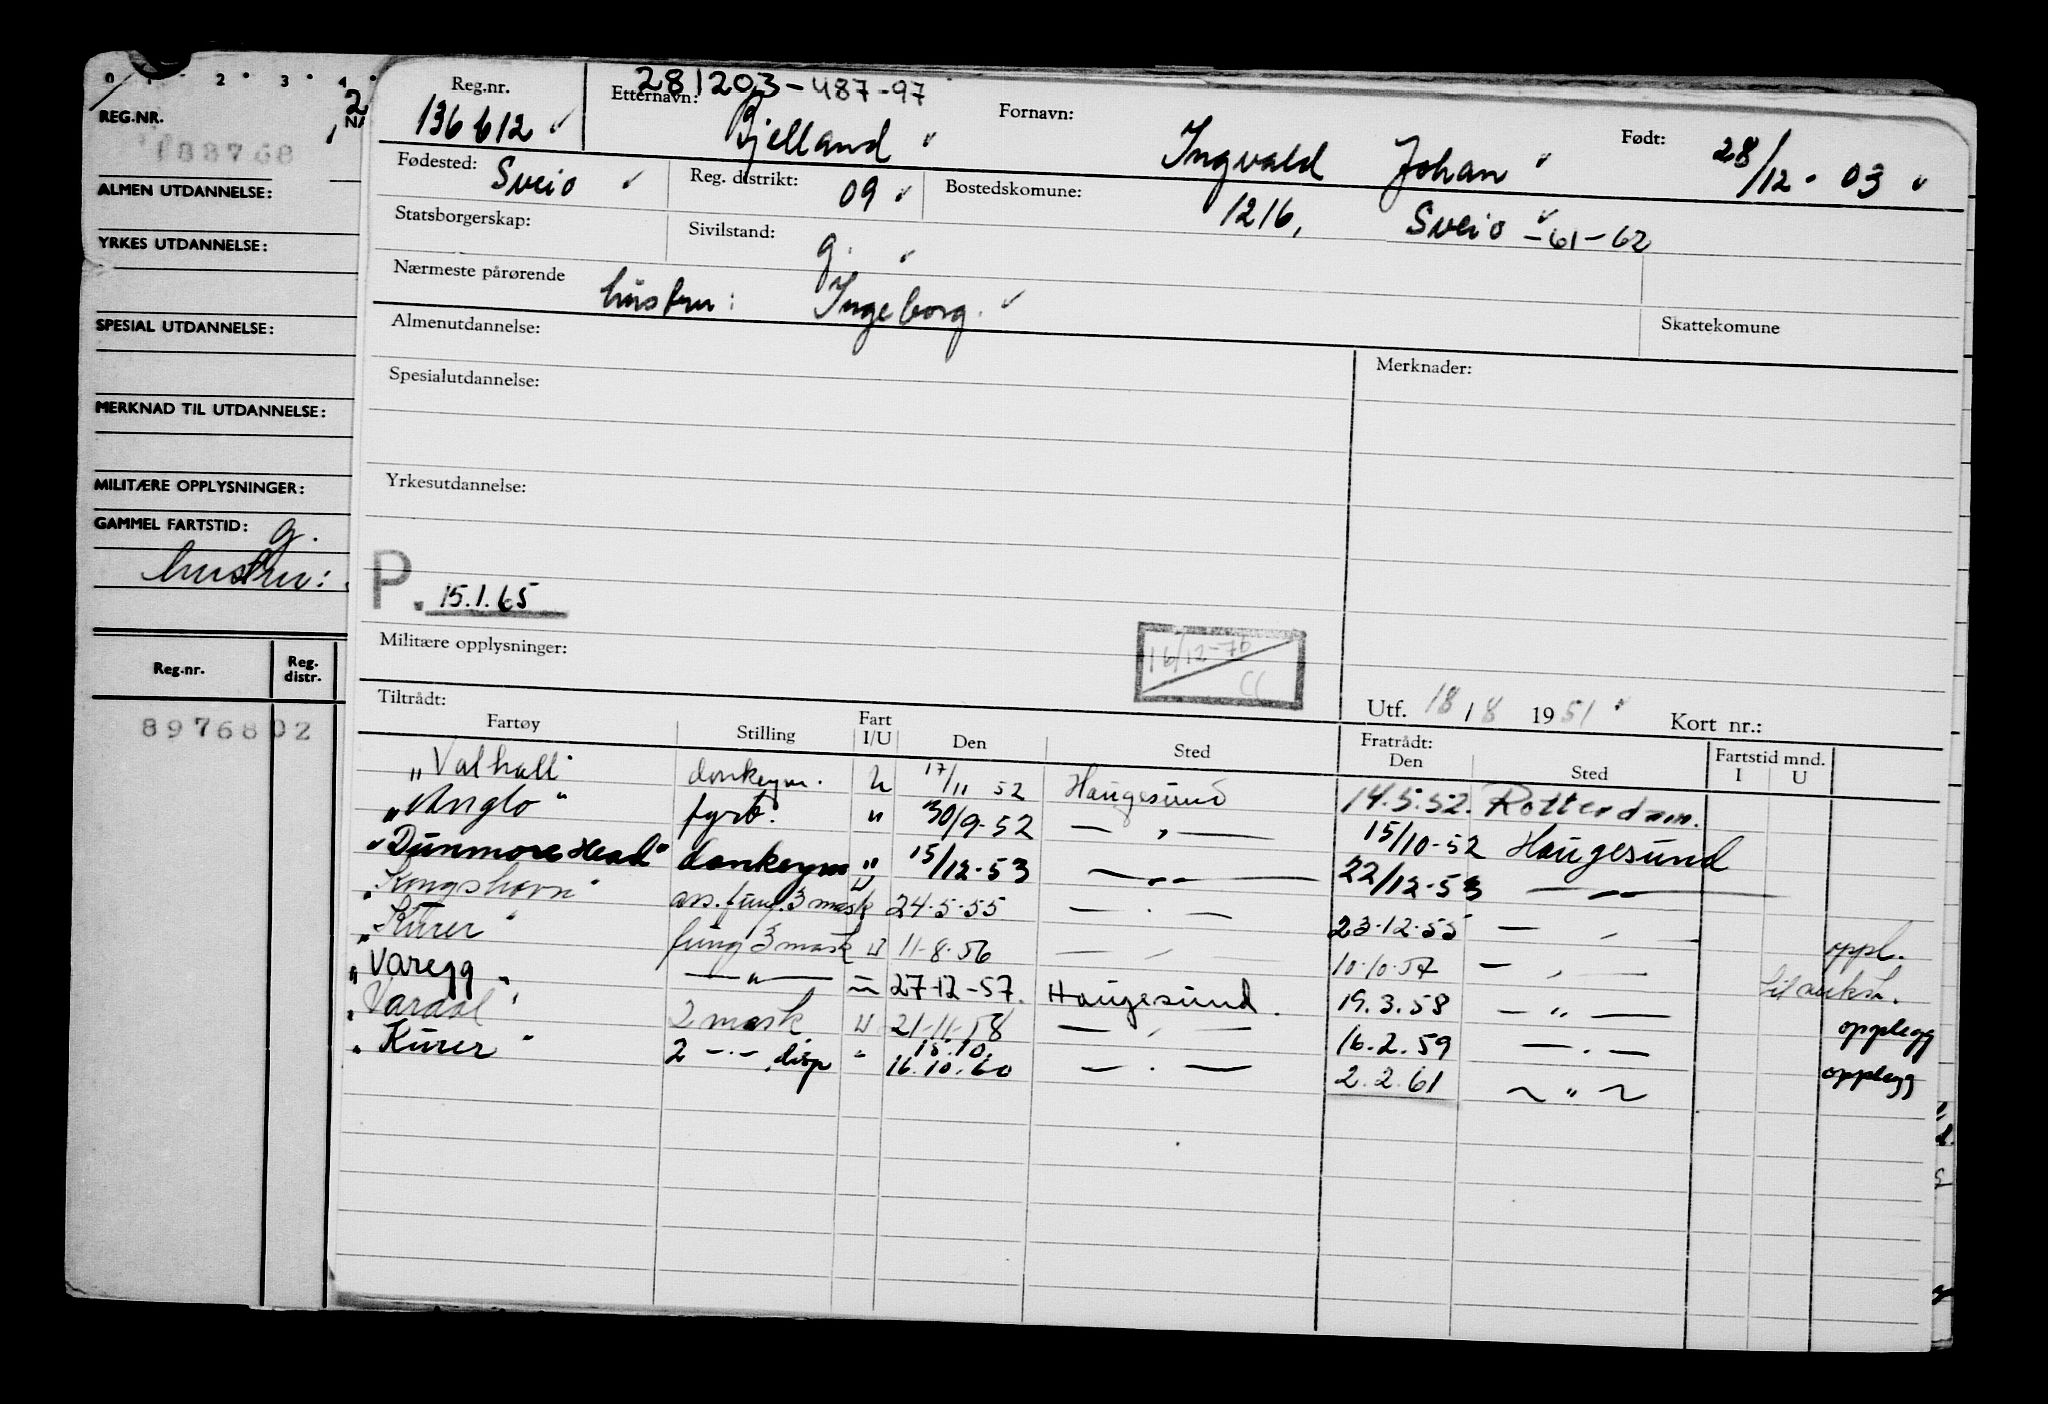 0 1 · 2 · 3 · 4 ·
REG.NR.
ALMEN UTDANNELSE:
YRKES UTDANNELSE:
SPESIAL UTDANNELSE:
MERKNAD TIL UTDANNELSE:
MILITÆRE OPPLYSNINGER:
GAMMEL FARTSTID: g.
hustru:
Reg.nr. Reg. distr.
89768 02
281203-487-97
Reg.nr. 136612 Etternavn: Bjelland Fornavn: Ingvald Johan Født: 28/12-03
Fødested: Sveio Reg. distrikt: 09 Bostedskomune: 1216, Sveio -61-62
Statsborgerskap: Sivilstand: g.
Nærmeste pårørende hustru: Ingeborg.
Almenutdannelse: Skattekomune
Spesialutdannelse: Merknader:
Yrkesutdannelse:
P. 15.1.65
Militære opplysninger: 16/12-76
Utf. 18/8 1951 Kort nr.:
Tiltrådt: Fratrådt: Fartstid mnd.
Fartøy Stilling Fart I/U Den Sted Den Sted I U
"Valhall" donkeym. U 17/11 52 Haugesund 14.5.52. Rotterdam.
"Anglo" fyrb. " 30/9-52 — " — 15/10-52 Haugesund
"Dunmore Head" donkeym " 15/12-53 — " — 22/12-53 — " —
"Kongshavn" ass. fung. 3 mask U 24-5-55 — " — 23-12-55 — " —
"Kurer" fung 3 mask U 11-8-56 — " — 10-10-57 — " — oppl.
"Varegg" — " — — 27-12-57. Haugesund. 19.3.58 — " —
"Vardal" 2 mask U 21-11-58 — " — 16.2.59 — " — opplegg
"Kurer" 2 — " — disp " 15.10. 16.10.60 — " — 2.2.61 ~ " ~ opplegg